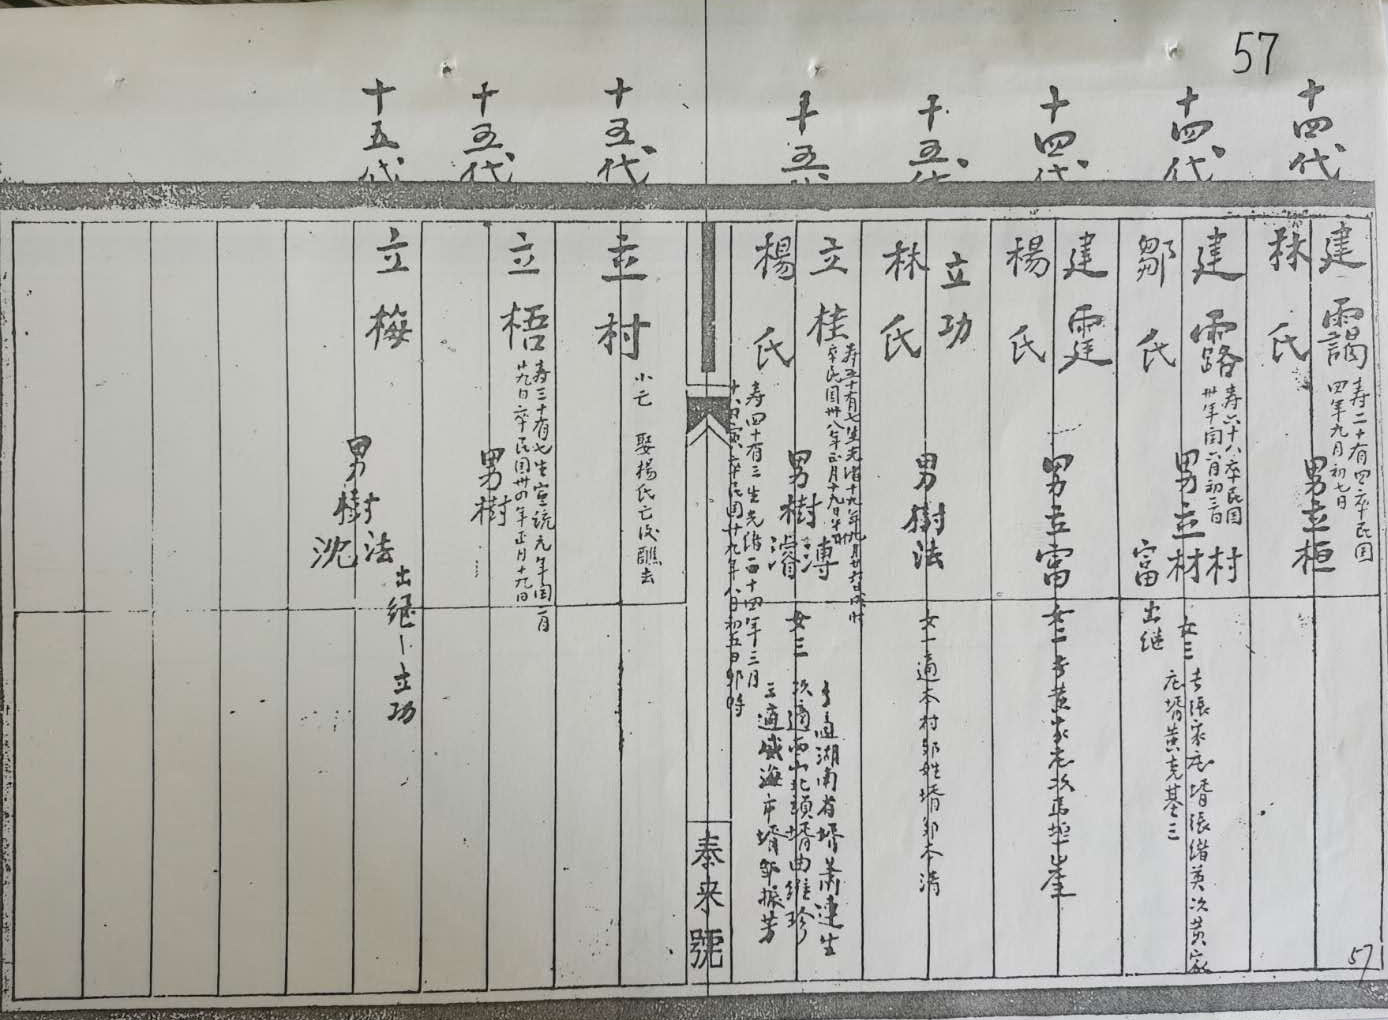 57
十四代
十四代
十四代
十五代
十五代
十五代
十五代
十五代
建靄
寿二十有四卒民国
四年九月初七日
男立桓
林氏
建露
寿六十八卒民国
卅年闰六月初三日
男立村
材
富出继
女三
长张家庄壻张绪英次黄家
庄壻黄克基三
鄒氏
建霆
男立富
女二
楊氏
立功
男樹法
女一適本村邹姓壻邹本清
林氏
立桂
寿五十有七生光绪十九年九月廿六日
卒民国卅八年正月十九日
男樹溥
濬
女三
長適湖南省壻萧連生
次適西山北頭壻曲维珍
三適威海市壻邹振芳
楊氏
寿四十有三生光绪二十四年三月
十八日寅卒民国廿九年八月初五日卯時
泰来號
立村
小亡
娶楊氏亡後醮去
立梧
寿三十有七生宣統元年闰二月
廿九日卒民国卅四年正月十九日
男樹
立梅
男樹法出继立功
沈
57